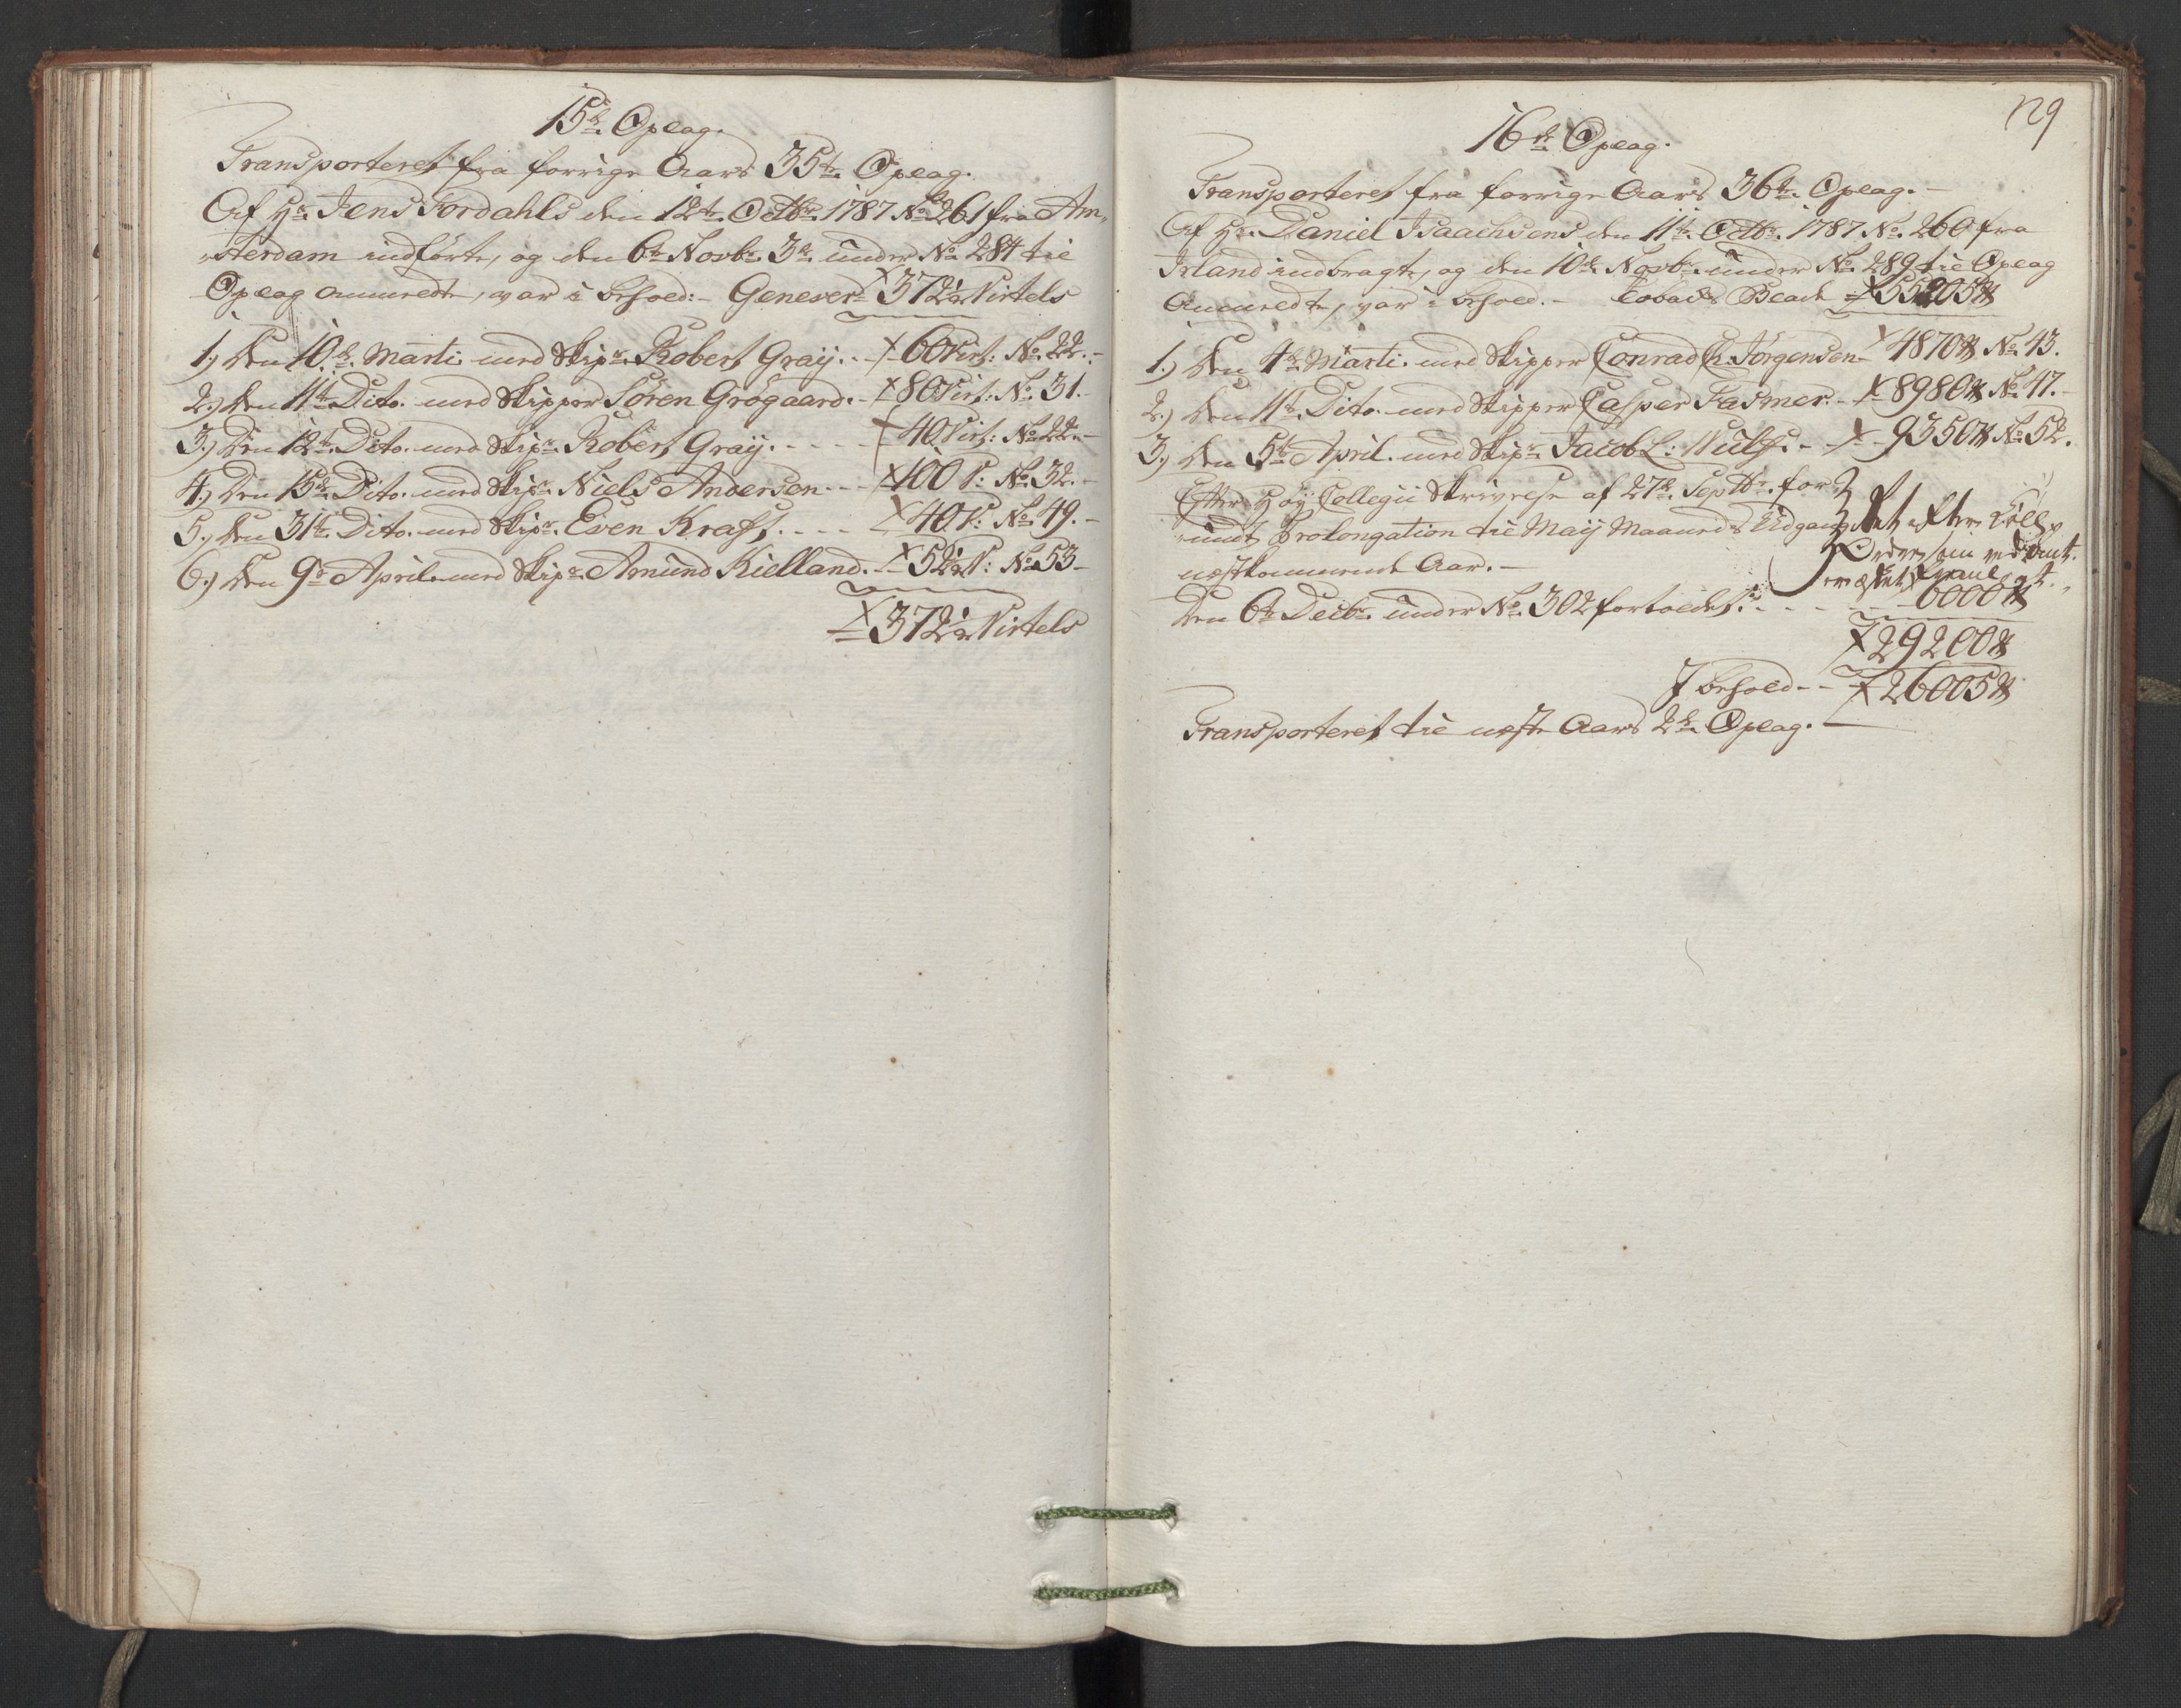 15de Oplag.
Transporteret fra forrige Aars 35te Oplag.
Af Hr. Jens Fordahls den 12te Octbr. 1787 No. 261 fra Am-
sterdam indførte, og den 6te Novbr. under No. 284 til
Oplag anmeldte, var i behold:- Genever 372½ Virtels
1.) Den 10de Marti med Skipr. Robert Graÿ. - 60 Virt: No. 22.-
2.) Den 11te Dito. med Skipper Sören Grögaard. - 80 Virt: No. 31.-
3.) Den 12te Dito. med Skipr. Robert Graÿ. - - - 40 Virt: No. 22.-
4.) Den 15de Dito. med Skipr. Niels Andersen - - 100 V: No. 32.-
5.) Den 31te Dito. med Skipr. Even Kraft. - - - 40 V: No. 49.-
6.) Den 9de April. med Skipr. Amund Kielland. - 52½ V: No. 53-
372½ Virtels
129
16de Oplag.
Transporteret fra forrige Aars 36te Oplag.-
Af Hr. Daniel Isaachsens den 11te Octbr. 1787 No. 260 fra
Irland indbragte, og den 10de Novbr. under No. 289 til Oplag
anmeldte, var i behold.- Tobacks Blade 55205 ℔
1.) Den 4de Marti. med Skipper Conrad Ch. Jörgensen - 4870 ℔ No. 43.
2.) Den 11te Dito. med Skipper Casper Fasmer. - 8980 ℔ No. 47.-
3.) Den 5te April. med Skipr. Jacob L: Wülf. - - 9350 ℔ No. 52.
Efter Høÿ Collegii Skrivelse af 27de Septbr. for-
undt Prolongation til Maÿ Maaneds Udgang
næstkommende Aar.-
efter
som ved
Den 6te Decbr. under No. 302 fortoldet. - - - 6000 ℔
29200 ℔
I behold - - 26005 ℔
Transporteret til næste Aars 2de Oplag.